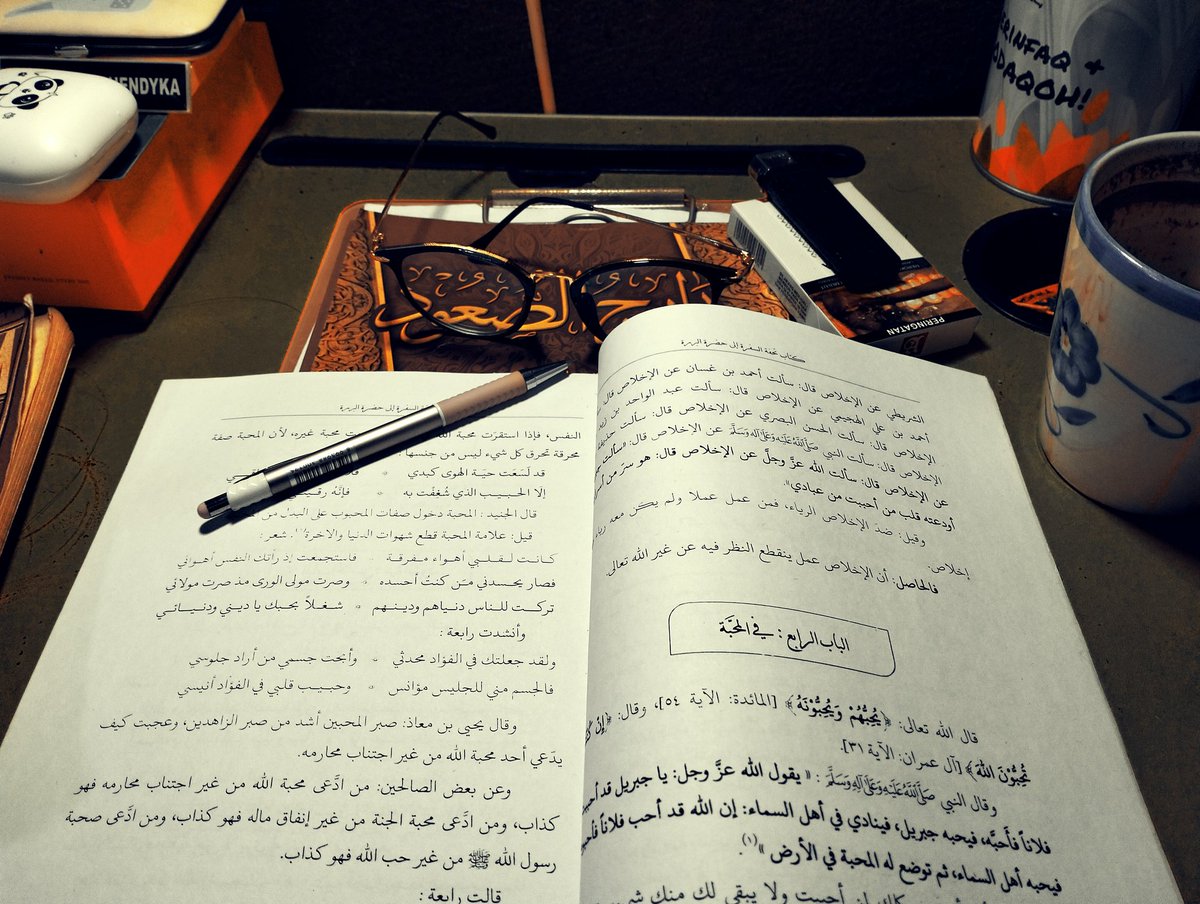 HENDYKA
BERINFAQ +
SODAQOH!
PERINGATAN
كتاب تحفة السفرة إلى حضرة البررة
الشريطي عن الإخلاص قال: سألت أحمد بن غسان عن الإخلاص قال:
أحمد بن علي الهجيمي عن الإخلاص قال: سألت عبد الواحد بن
الإخلاص قال: سألت الحسن البصري عن الإخلاص قال: سألت
عن الإخلاص قال: سألت النبي صلى الله عليه وعلى آله وسلم عن الإخلاص قال:
عن الإخلاص قال: سألت الله عزَّ وجلَّ عن الإخلاص قال: هو سرّ من
أودعته قلب من أحببت من عبادي».
وقيل: ضد الإخلاص الرياء، فمن عمل عملا ولم يكن معه
إخلاص.
فالحاصل: أن الإخلاص عمل ينقطع النظر فيه عن غير الله تعالى.
الباب الرابع: في المحبَّة
قال الله تعالى: ﴿يُحِبُّهُمْ وَيُحِبُّوْنَهُ﴾ [المائدة: الآية ٥٤]، وقال: ﴿إِنْ
تُحِبُّوْنَ اللهَ﴾ [آل عمران: الآية ٣١].
وقال النبي صلى الله عليه وعلى آله وسلم: «يقول الله عزَّ وجل: يا جبريل قد
فلاناً فَأَحِبَّه، فيحبه جبريل، فينادي في أهل السماء: إن الله قد أحب فلاناً
فيحبه أهل السماء، ثم توضع له المحبة في الأرض»(١).
أحببت ولا يبقى لك منك
السفرة إلى حضرة البررة
النفس، فإذا استقرّت محبة محبة غيره، لأن المحبة صفة
محرقة تحرق كل شيء ليس من جنسها
قد لَسَعَت حيّة الهوى كبدي
إلا الحبيب الذي شُغفْت به ٠ فإنّه
قال الجنيد: المحبة دخول صفات المحبوب على البدل من
قيل: علامة المحبة قطع شهوات الدنيا والآخرة(١). شعر:
كانت لقلبي أهواء مفرقة ٠ فاستجمعت إذ رأتك النفس أهوائي
فصار يحسدني مَن كنتُ أحسده ٠ وصرت مولى الورى مذ صرت مولائي
تركت للناس دنياهم ودينهم ٠ شغلاً بحبك يا ديني ودنيائي
وأنشدت رابعة:
ولقد جعلتك في الفؤاد محدثي ٠ وأبحت جسمي من أراد جلوسي
فالجسم مني للجليس مؤانس ٠ وحبيب قلبي في الفؤاد أنيسي
وقال يحيى بن معاذ: صبر المحبين أشد من صبر الزاهدين، وعجبت كيف
يدّعي أحد محبة الله من غير اجتناب محارمه.
وعن بعض الصالحين: من ادَّعى محبة الله من غير اجتناب محارمه فهو
كذاب، ومن ادَّعى محبة الجنة من غير إنفاق ماله فهو كذاب، ومن ادَّعى صحبة
رسول الله ﷺ من غير حب الله فهو كذاب.
قالت رابعة: